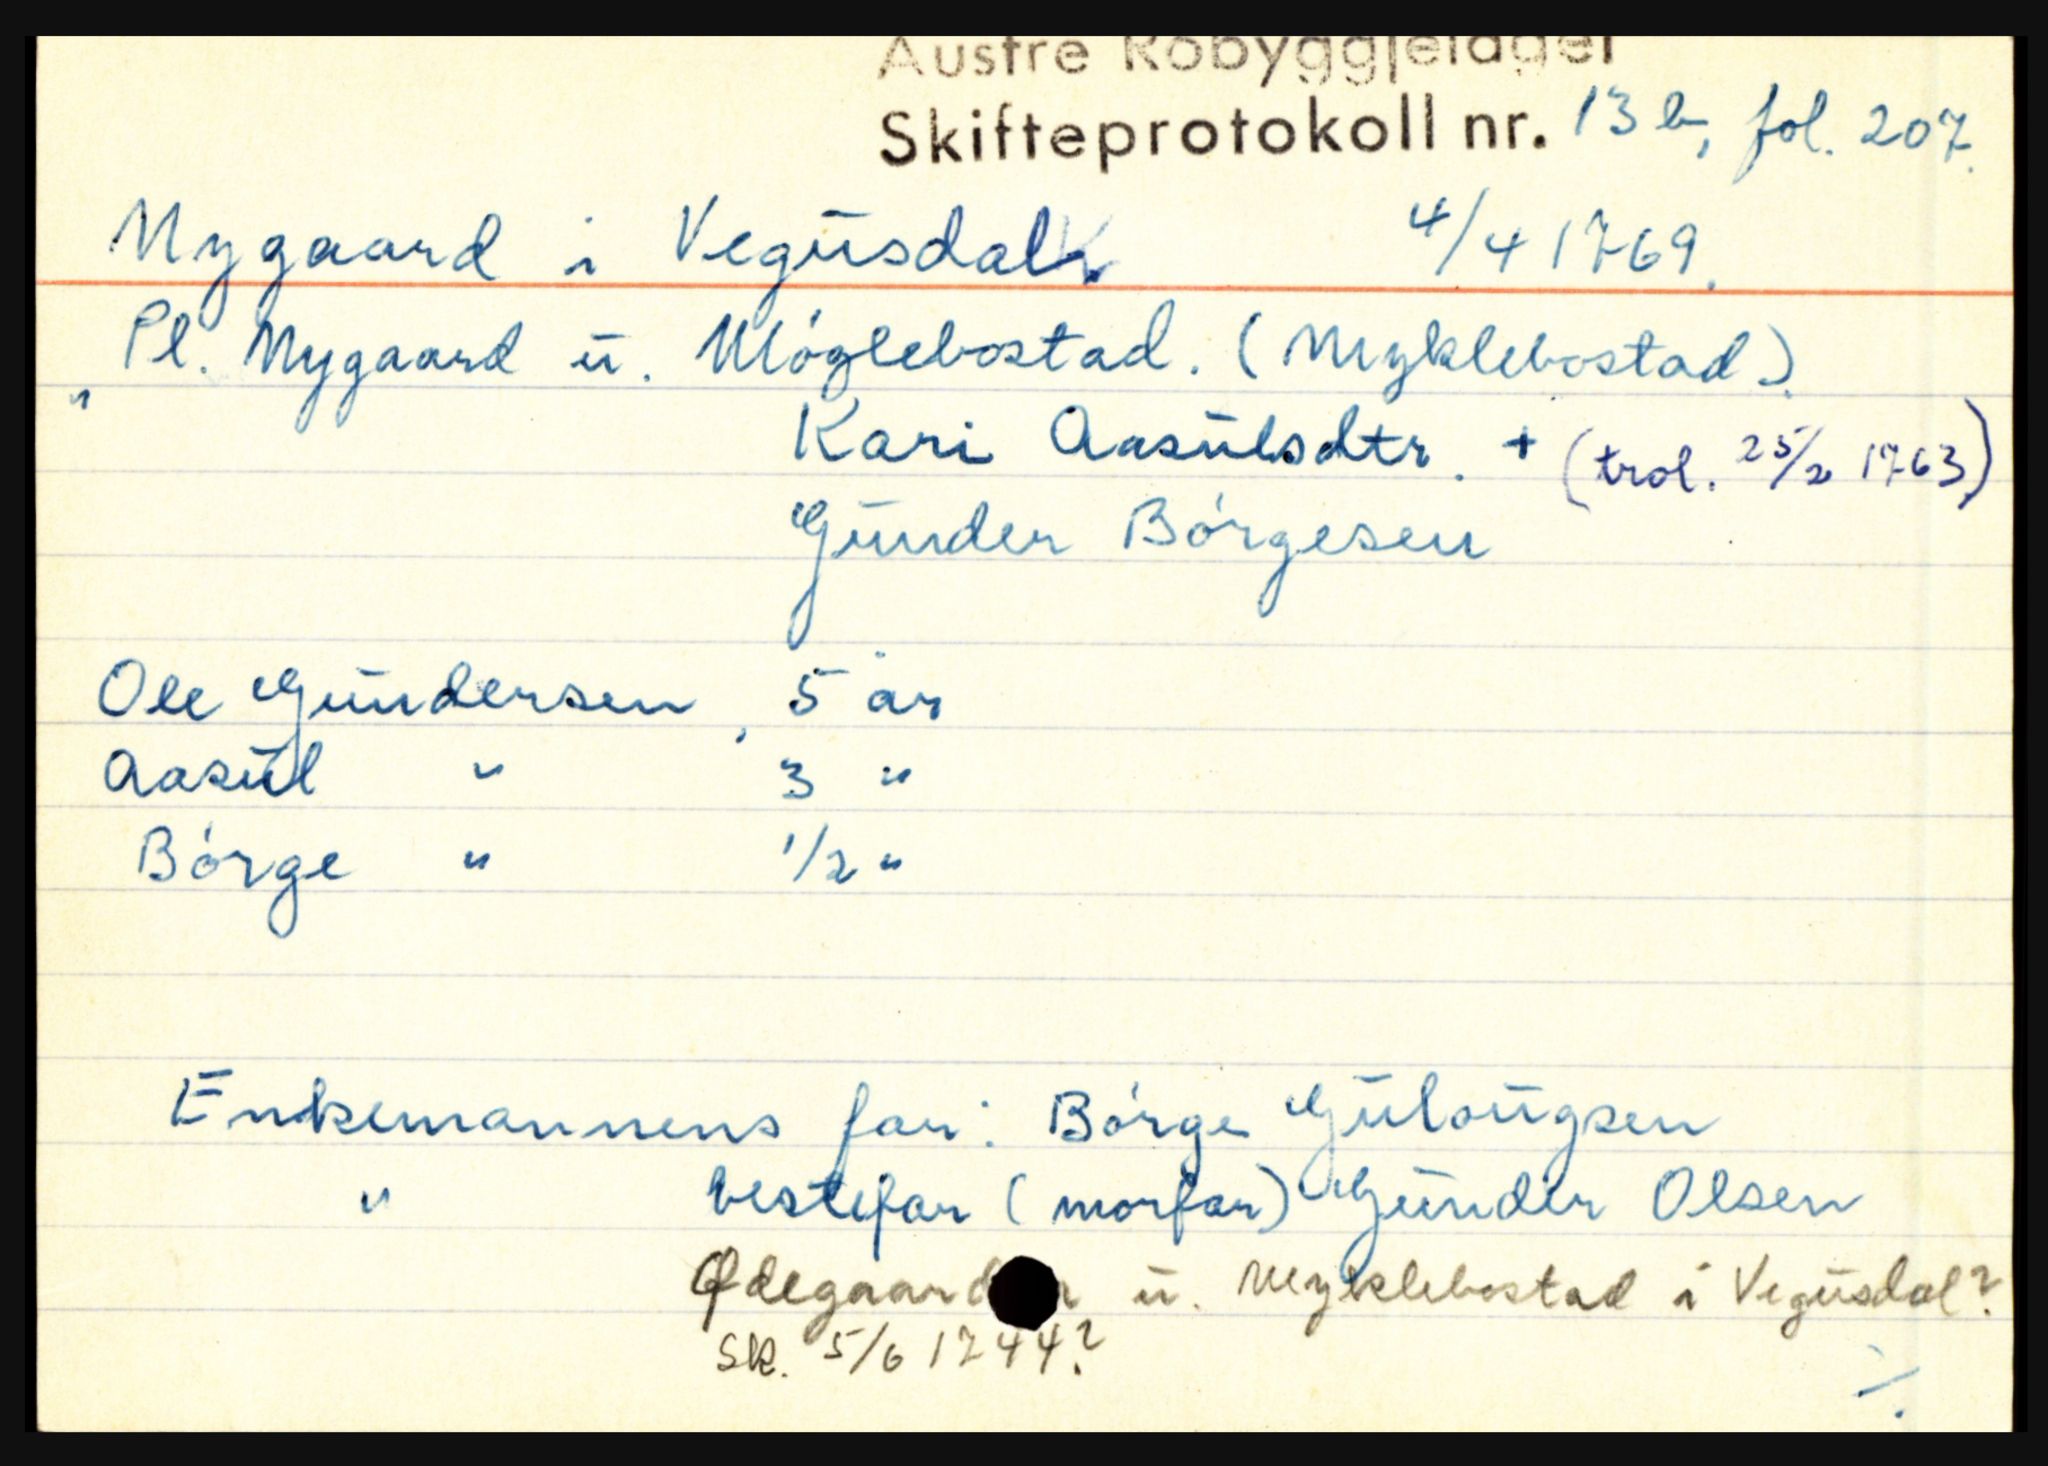 Austre Robyggjelaget
Skifteprotokoll nr. 13 b, fol. 207.
Nygaard i Vegusdal 4/4 1769.
" Pl. Nygaard u. Móglebostad. (Myklebostad).
Kari Aasulsdtr. + (trol. 25/2 1763)
Gunder Bórgesen
Ole Gundersen, 5 år
Aasul " 3 "
Bórge " 1/2 "
Enkemannens far: Bórge Gulougsen
" bestefar (morfar) Gunder Olsen
Ødegaarden u. Myklebostad i Vegusdal?
Sk. 5/6 1744?